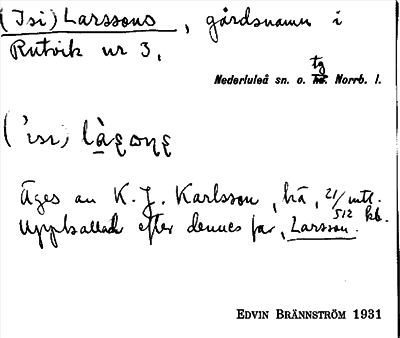 (Isi) Larssons, gårdsnamn i
Rutvik nr 3,
tg
Nederluleå sn. o. hd. Norrb. l.
Äges av K. J. Karlsson, hä, 21/512 mtl. kb.
Uppkallad efter dennes far, Larsson.
EDVIN BRÄNNSTRÖM 1931